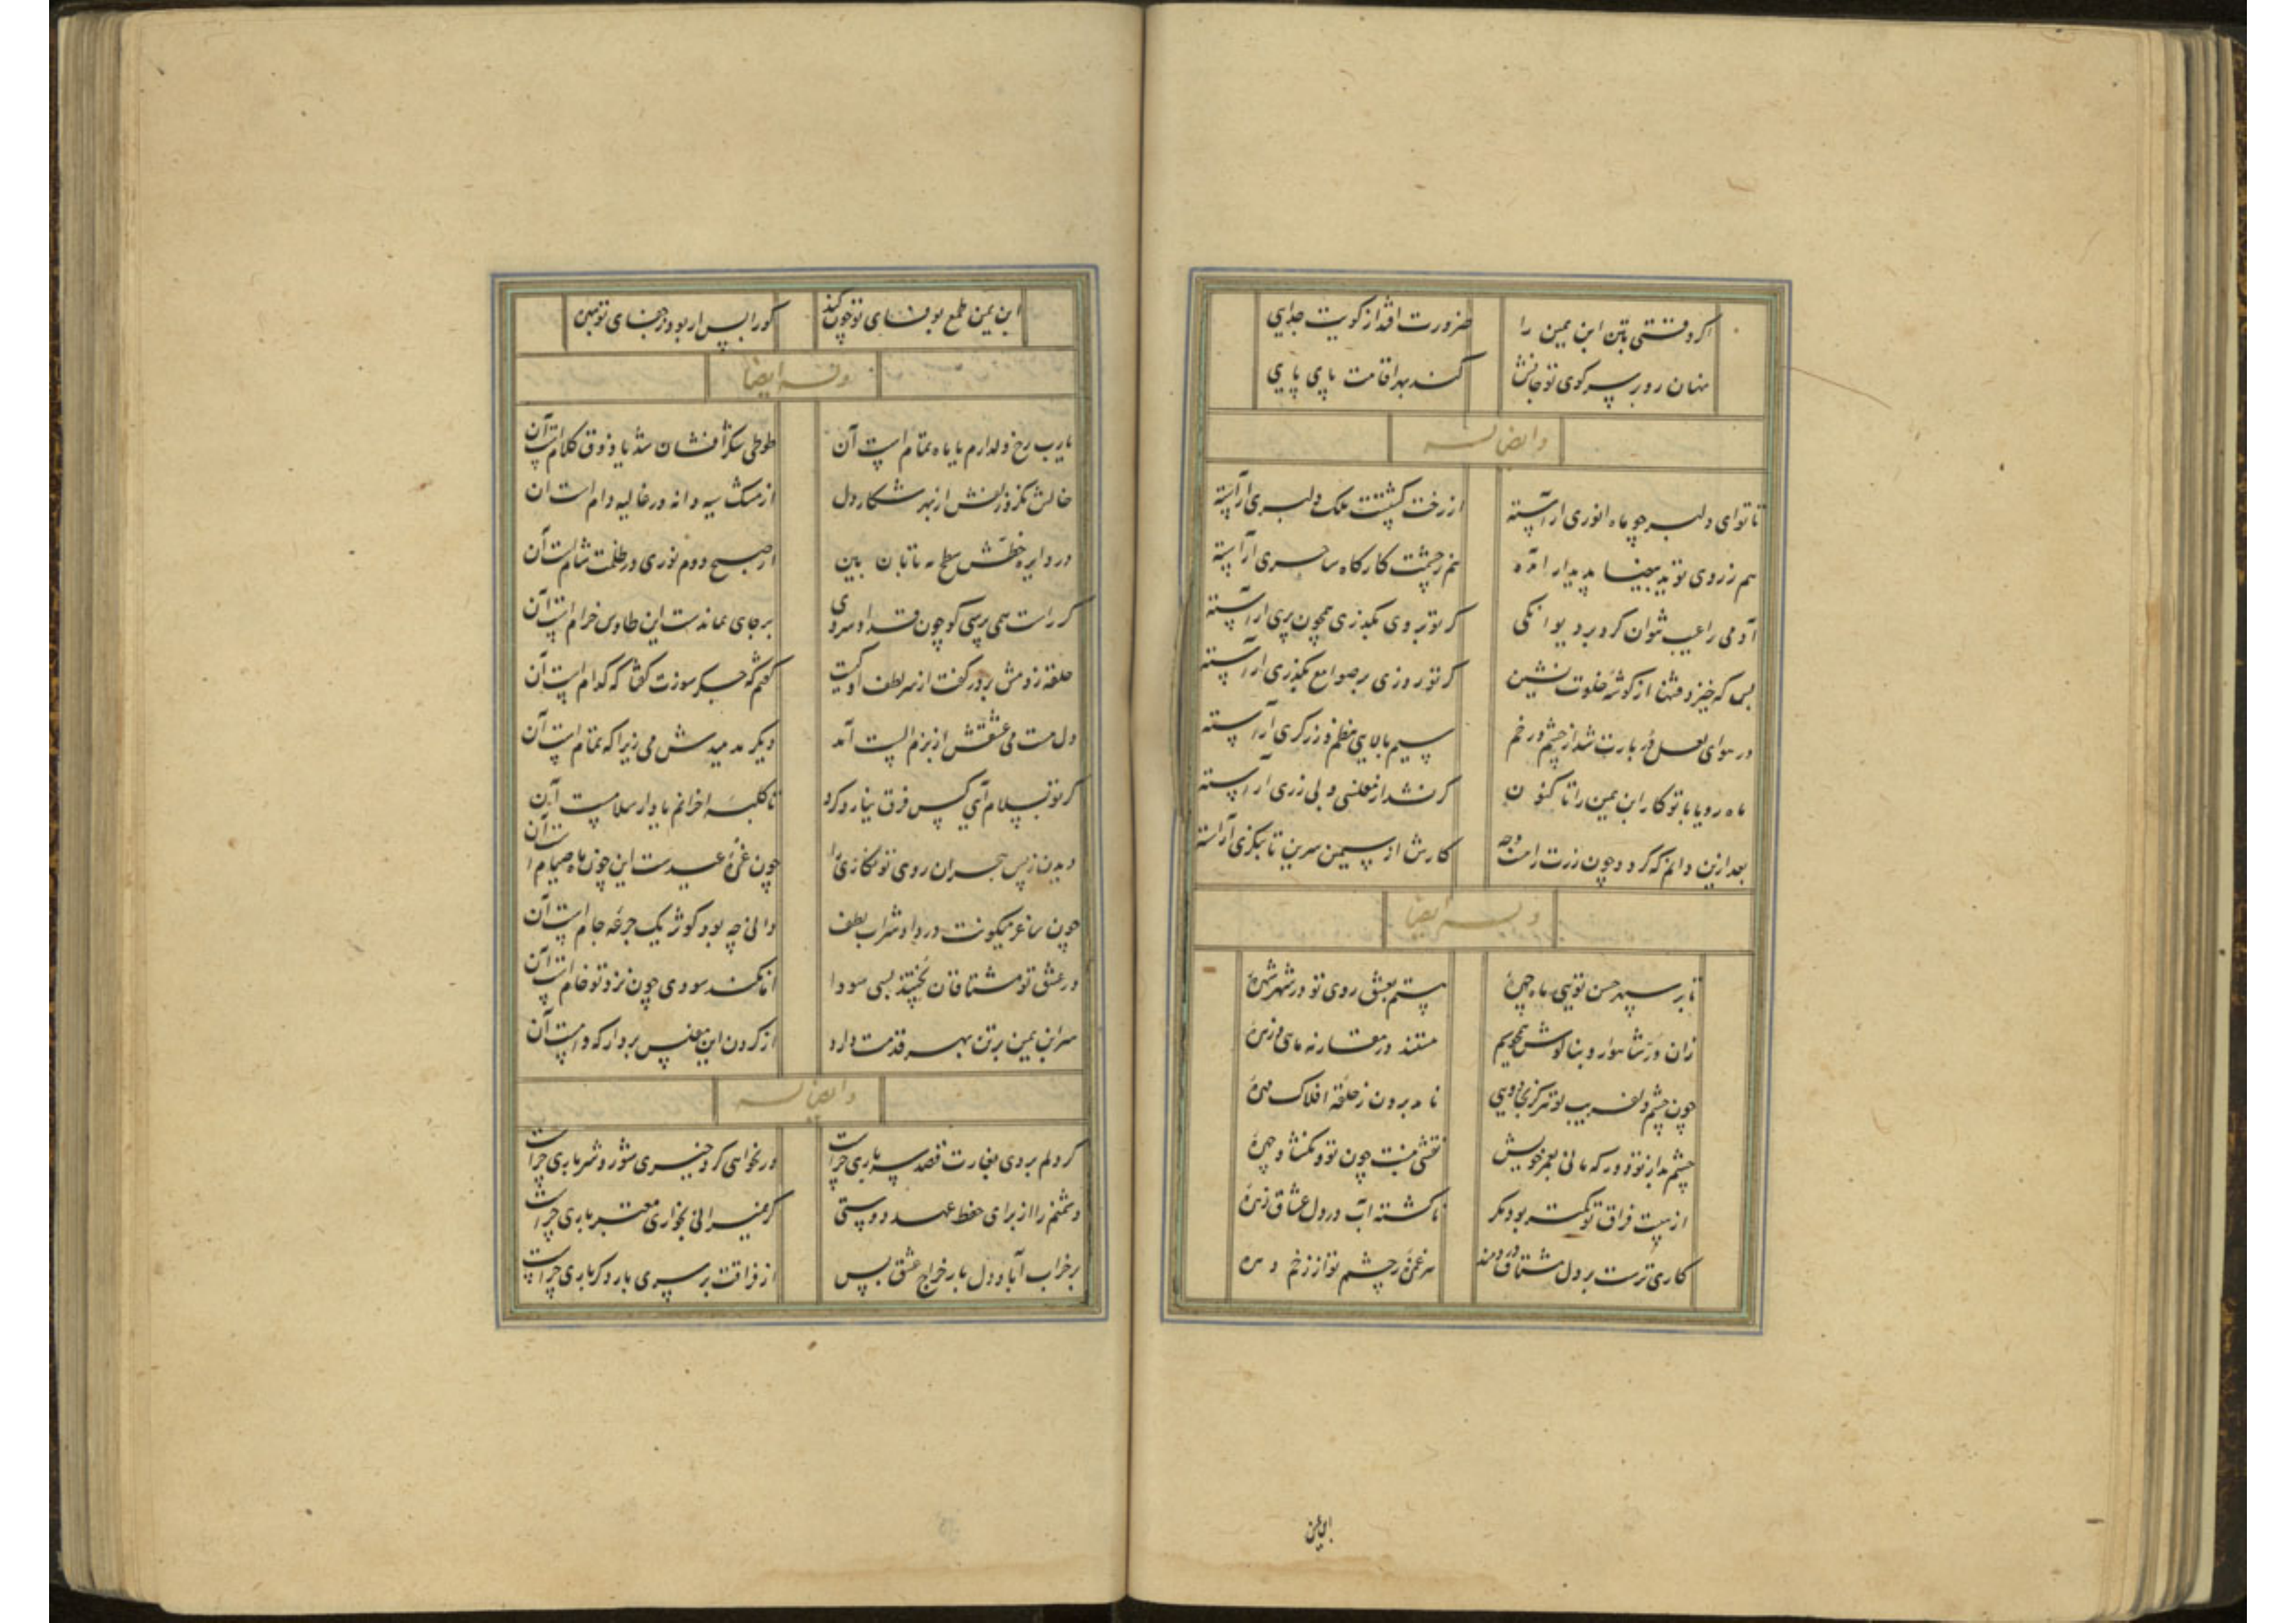 اگر وقتی بتن ابن یمین را
ضرورت افتد از کویت جدایی
چنان رو بر سر کوی تو جانش
کند بهر اقامت پای پایی
و ایضا له
تا توای دلبر چو ماه انوری آراسته
از رخت گشتست ملک دلبری آراسته
هم ز روی تو ید بیضا پدیدار آمده
هم ز چشمت کارگاه ساحری آراسته
آدمی را عیب نتوان کرد بر دیوانگی
گر تو بر وی بگذری همچون پری آراسته
بس که خیزد فتنها از گوشه خلوت نشین
گر تو روزی بر صوامع بگذری آراسته
در هوای لعل دربارت شد از چشم و رخم
سیم بالایی بنظم و زرگری آراسته
ماه رویا با تو کار ابن یمین را تا کنون
گر نشد از مفلسی و بی زری آراسته
بعد ازین دانم که گردد چون زرت راست وجه
کارش از سیمین سرین تا بنگری آراسته
وله ایضا
تا بر سپهر حسن تویی ماه چهره
هستم بعشق روی تو در شهر شهره
زان در شاهوار و بناگوش همچو سیم
هستند در مقارنه ماهی و زهره
چون چشم دلفریب تو نرگس بجادویی
نامد برون ز حلقه افلاک مهره
چشم مدار تو دور که مانی بعمر خویش
نقشی نبست چون تو و نگشاد چهره
از هیبت فراق تو نگسسته بود مگر
ناگشته آب در دل عشاق زهره
کاری ترست بر دل مشتاق دردمند
هر غمزه ز چشم تو از زخم دهره
ابن یمین
ابن یمین طمع بوفای تو چون کند
کو را بس ار بود ز جفای تو بهره
وله ایضا
یارب رخ دلدارم یا ماه تمام است آن
طوطی شکر افشان شد یا ذوق کلام است آن
خالش نگر و زلفش از بهر شکار دل
از مشک سیه دانه در غالیه دام است آن
در دایره خطش سطح مه تابان بین
از صبح دوم نوری در ظلمت شام است آن
گر راست همی پرسی گو چون قد او سروی
بر جای بماندست این طاوس خرام است آن
حلقه زدمش بر در گفت از سر لطف او کیست
گفتم که جگر سوزت گفتا که کدام است آن
دل مست می عشقش از بزم الست آمد
دیگر مدهیدش می زیرا که تمام است آن
گر تو بسلام آیی کس فرق نیارد کرد
تا کلبه احزانم یا دار سلام است آن
دیدن ز پس هجران روی تو نگارین را
چون غره عیدست این چون ماه صیام است آن
چون ساغر میگونت درداد شراب لطف
دانی چه بود کوثر یک جرعه جام است آن
در عشق تو مشتاقان پختند بسی سودا
اما نکند سودی چون نزد تو خام است آن
سر ابن یمین بر تن بهر قدمت دارد
از گردن این مفلس بردار که وام است آن
و ایضا له
گر دلم بردی بغارت قصد سر باری چراست
ور نخواهی کرد خیری شور و شر باری چراست
دشمنم را از برای حفظ عهد دوستی
گر نمیرانی بخواری معتبر باری چراست
بر خراب آباد دل بار خراج عشق بس
از فراقت بر سری بار دگر باری چراست